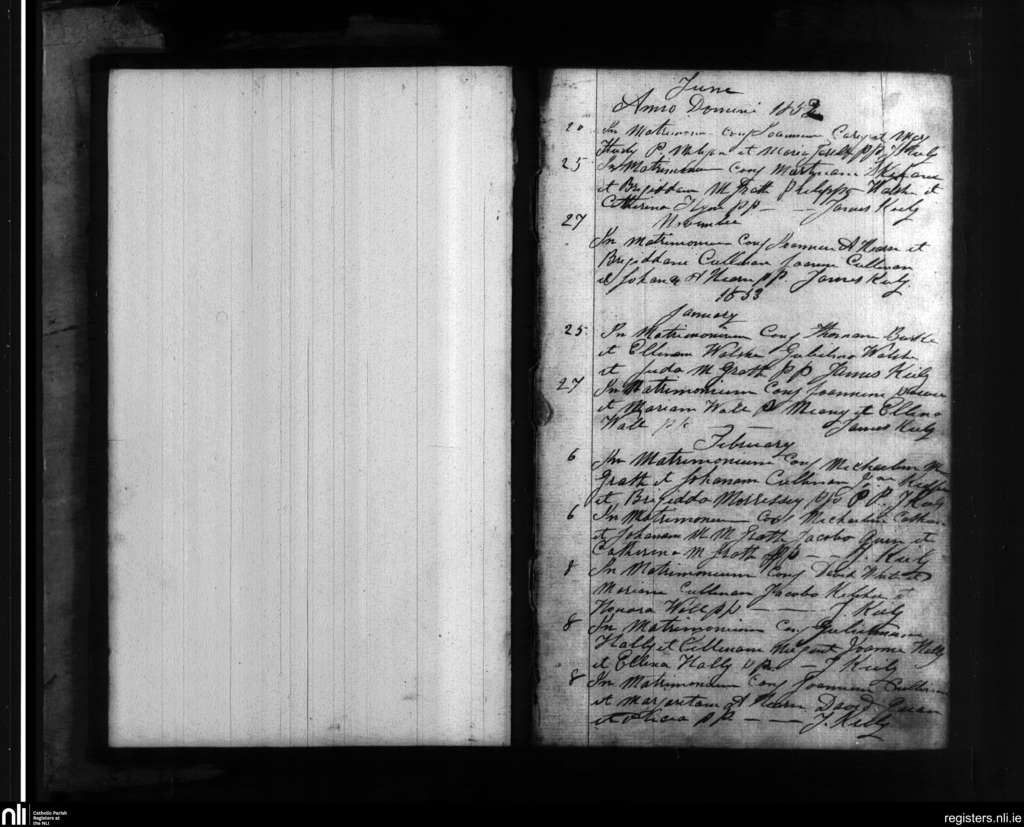 June
Anno Domini 1852
20 In Matrimon conj Joannem Carey et Mary
P. et Maria pp J Kiely
25 In Matrimonium Conj Martinum
et Brigiddam McGrath Philippo Walsh et
Catherina pp — — James Kiely
27 November
In matrimonium Conj Joannem A Hearn et
Brigiddam Cullinan Joanne Cullinan
et Johana A Hearn pp. James Kiely.
1853
January
25 In Matrimonium Conj Thomam Burke
et Ellenam Walshe Gulielmo Walshe
et Juda McGrath pp James Kiely
27 In Matrimonium Conj Joannem
et Mariam Wall P Meany et Ellena
Wall pp James Kiely
February
6 In Matrimonium Conj Michaelem Mc
Grath et Johanam Cullinan
et Brigidda Morrissey pp P P. J Kiely
6 In Matrimonium Conj Michaelem
et Johanam McGrath Jacobo Quin et
Catherina McGrath pp — — J. Kiely
8 In Matrimonium Conj David White et
Mariam Cullinan Jacobo et
Honora Wall pp — — J. Kiely
8 In Matrimonium Conj Gulielmum
Hally et Ellenam Nugent Joanne Hally
et Ellena Hally pp. — J Kiely
8 In Matrimonium Conj Joannem Cullinan
et Margaretam A Hearn David
et pp — — J. Kiely
nli
Catholic Parish
Registers at
the NLI
registers.nli.ie